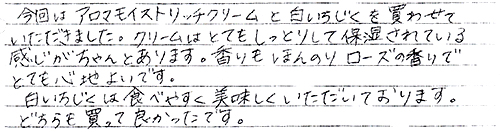 今回は アロマモイストリッチクリーム と 白いちじく を 買わせて
いただきました。クリームは とても しっとりして 保湿されている
感じが ちゃんと あります。香りも ほんのり ローズの香りで
とても 心地よいです。
白いちじくは 食べやすく 美味しく いただいております。
どちらも 買って 良かったです。